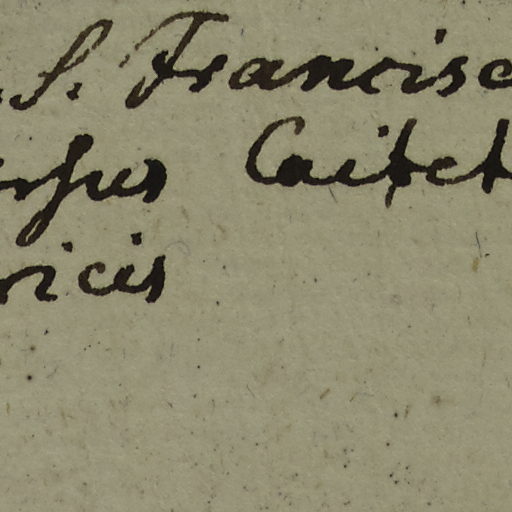 . S. Francisc
ersus Caitet
ricis